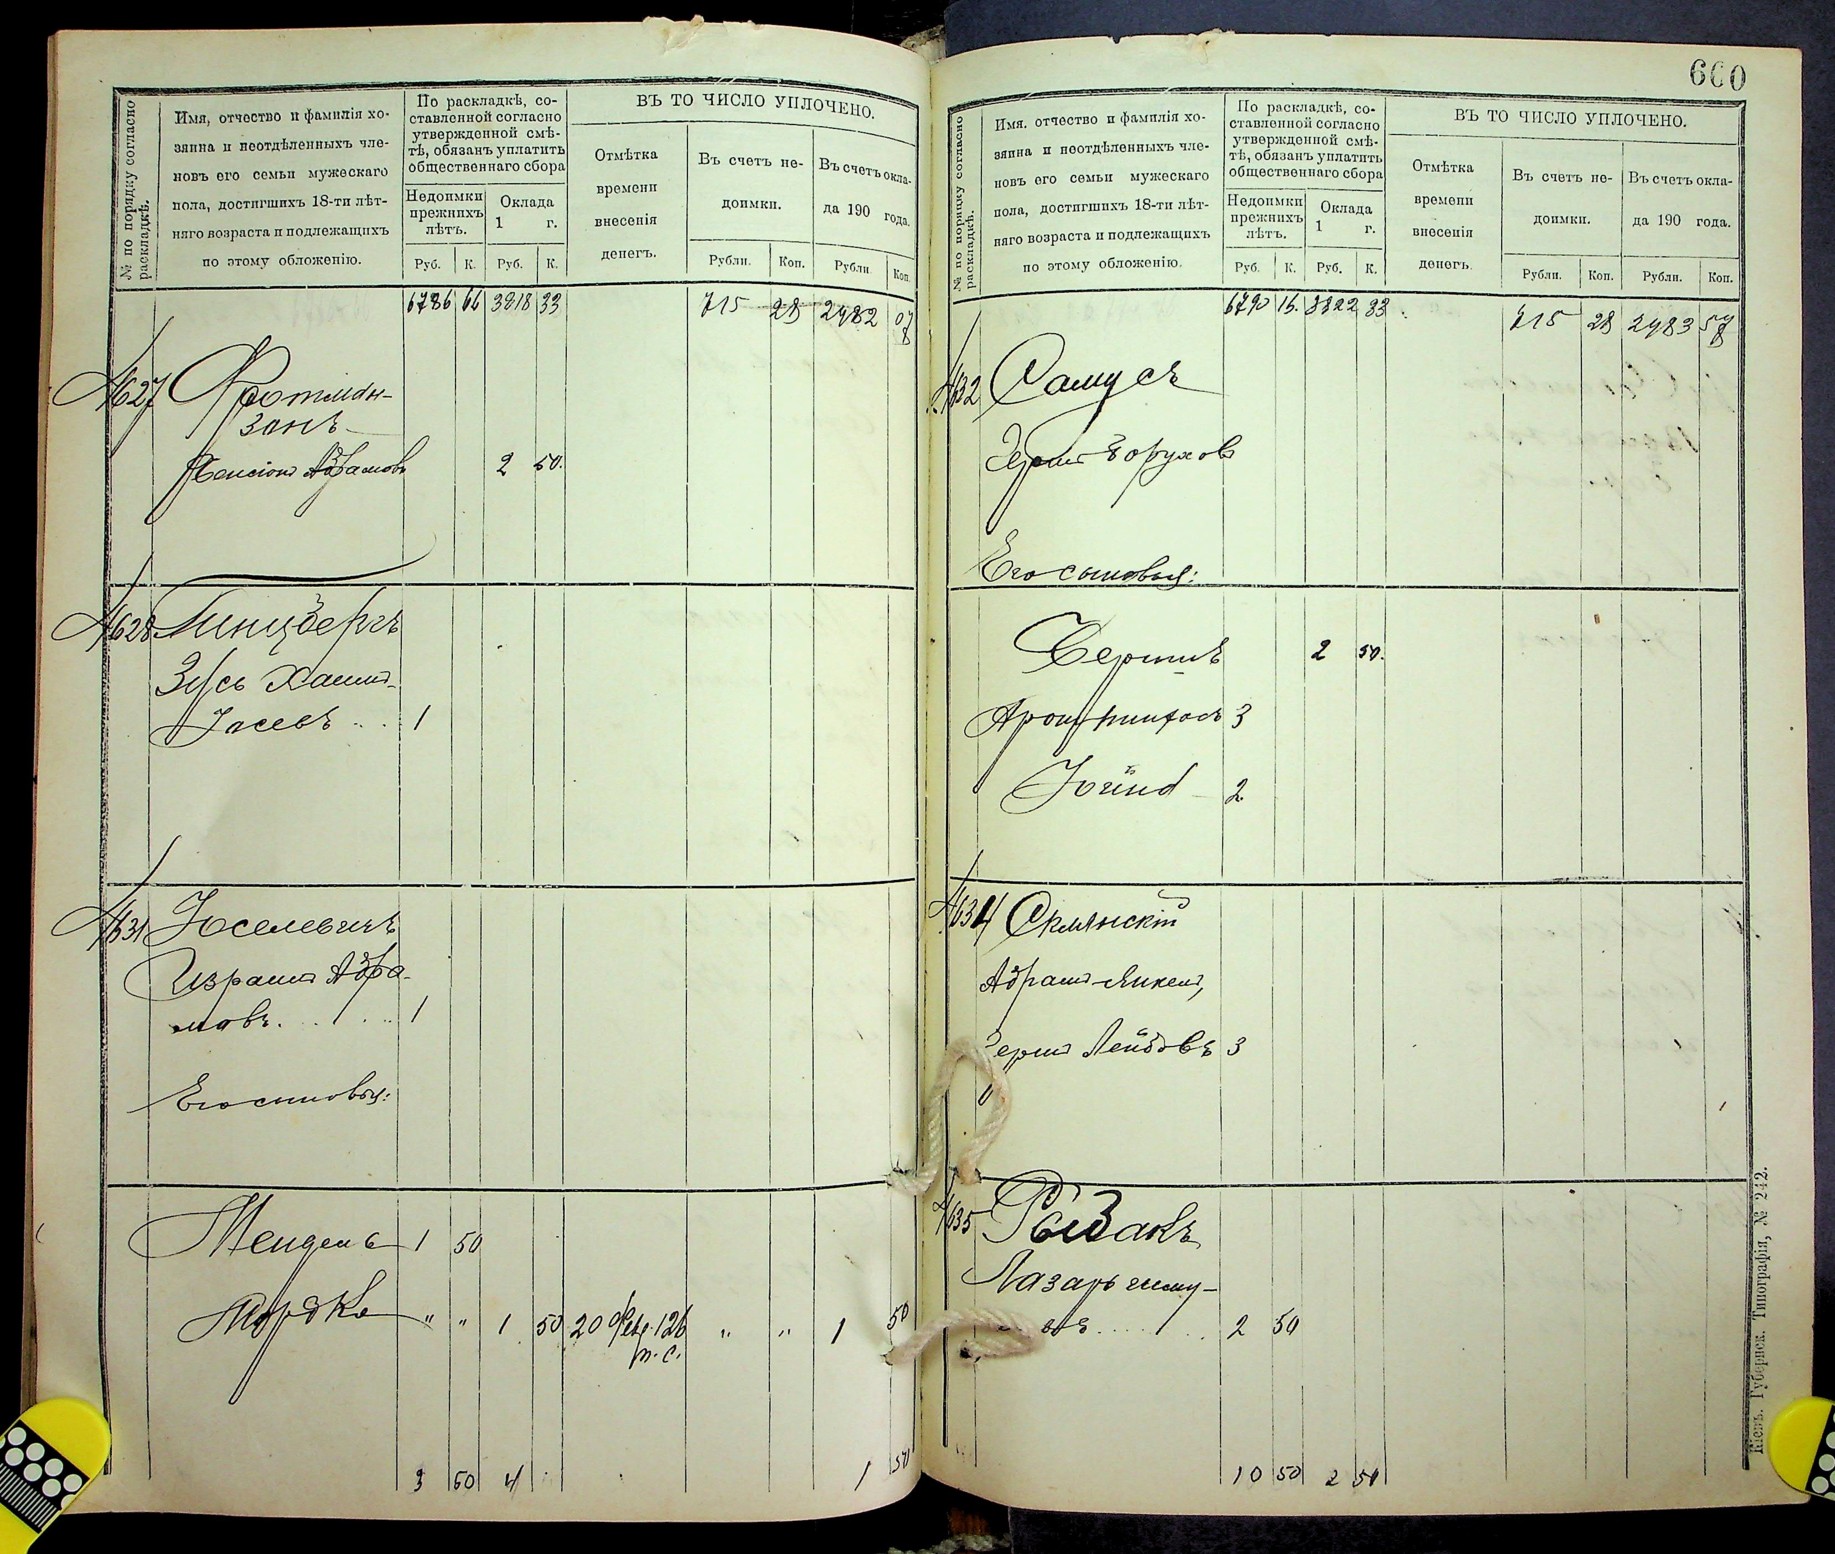 № по порядку согласно раскладкѣ.
Имя, отчество и фамилія хо-
зяина и неотдѣленныхъ чле-
новъ его семьи мужескаго
пола, достигшихъ 18-ти лѣт-
няго возраста и подлежащихъ
по этому обложенію.
По раскладкѣ, со-
ставленной согласно
утвержденной смѣ-
тѣ, обязанъ уплатить
общественнаго сбора
Недоимки
прежнихъ
лѣтъ.
Оклада
1 г.
Руб. К. Руб. К.
ВЪ ТО ЧИСЛО УПЛОЧЕНО.
Отмѣтка
времени
внесенія
денегъ.
Въ счетъ не-
доимки.
Въ счетъ окла-
да 190 года.
Рубли. Коп. Рубли. Коп.
6786 66 3818 33 715 28 2482 07
627
зонъ
Абрамовъ 2 50.
628 Гинцбергъ
Зусь Хаимъ-
Іосевъ 1
631 Іоселевичъ
Израиль Абра-
мовъ 1
Его сыновья:
Мендель 1 50
Мордко " " 1 50 20 126 " " 1 50
3 50 4 1 50
660
№ по порядку согласно раскладкѣ.
Имя, отчество и фамилія хо-
зяина и неотдѣленныхъ чле-
новъ его семьи мужескаго
пола, достигшихъ 18-ти лѣт-
няго возраста и подлежащихъ
по этому обложенію.
По раскладкѣ, со-
ставленной согласно
утвержденной смѣ-
тѣ, обязанъ уплатить
общественнаго сбора
Недоимки
прежнихъ
лѣтъ.
Оклада
1 г.
Руб. К. Руб. К.
ВЪ ТО ЧИСЛО УПЛОЧЕНО.
Отмѣтка
времени
внесенія
денегъ.
Въ счетъ не-
доимки.
Въ счетъ окла-
да 190 года.
Рубли. Коп. Рубли. Коп.
6790 16. 3822 33 715 28 2483 57
632 Самусъ
Герш Борухов
Его сыновья:
Беришъ 2 50.
Арон Пинхосъ 3
2
634 Склянскій
Абрам-Янкель,
Герш Лейбовъ 3
635 Рыбакъ
Лазарь
2 50
10 50 2 50
Кіевъ. Губернск. Типографія, № 242.